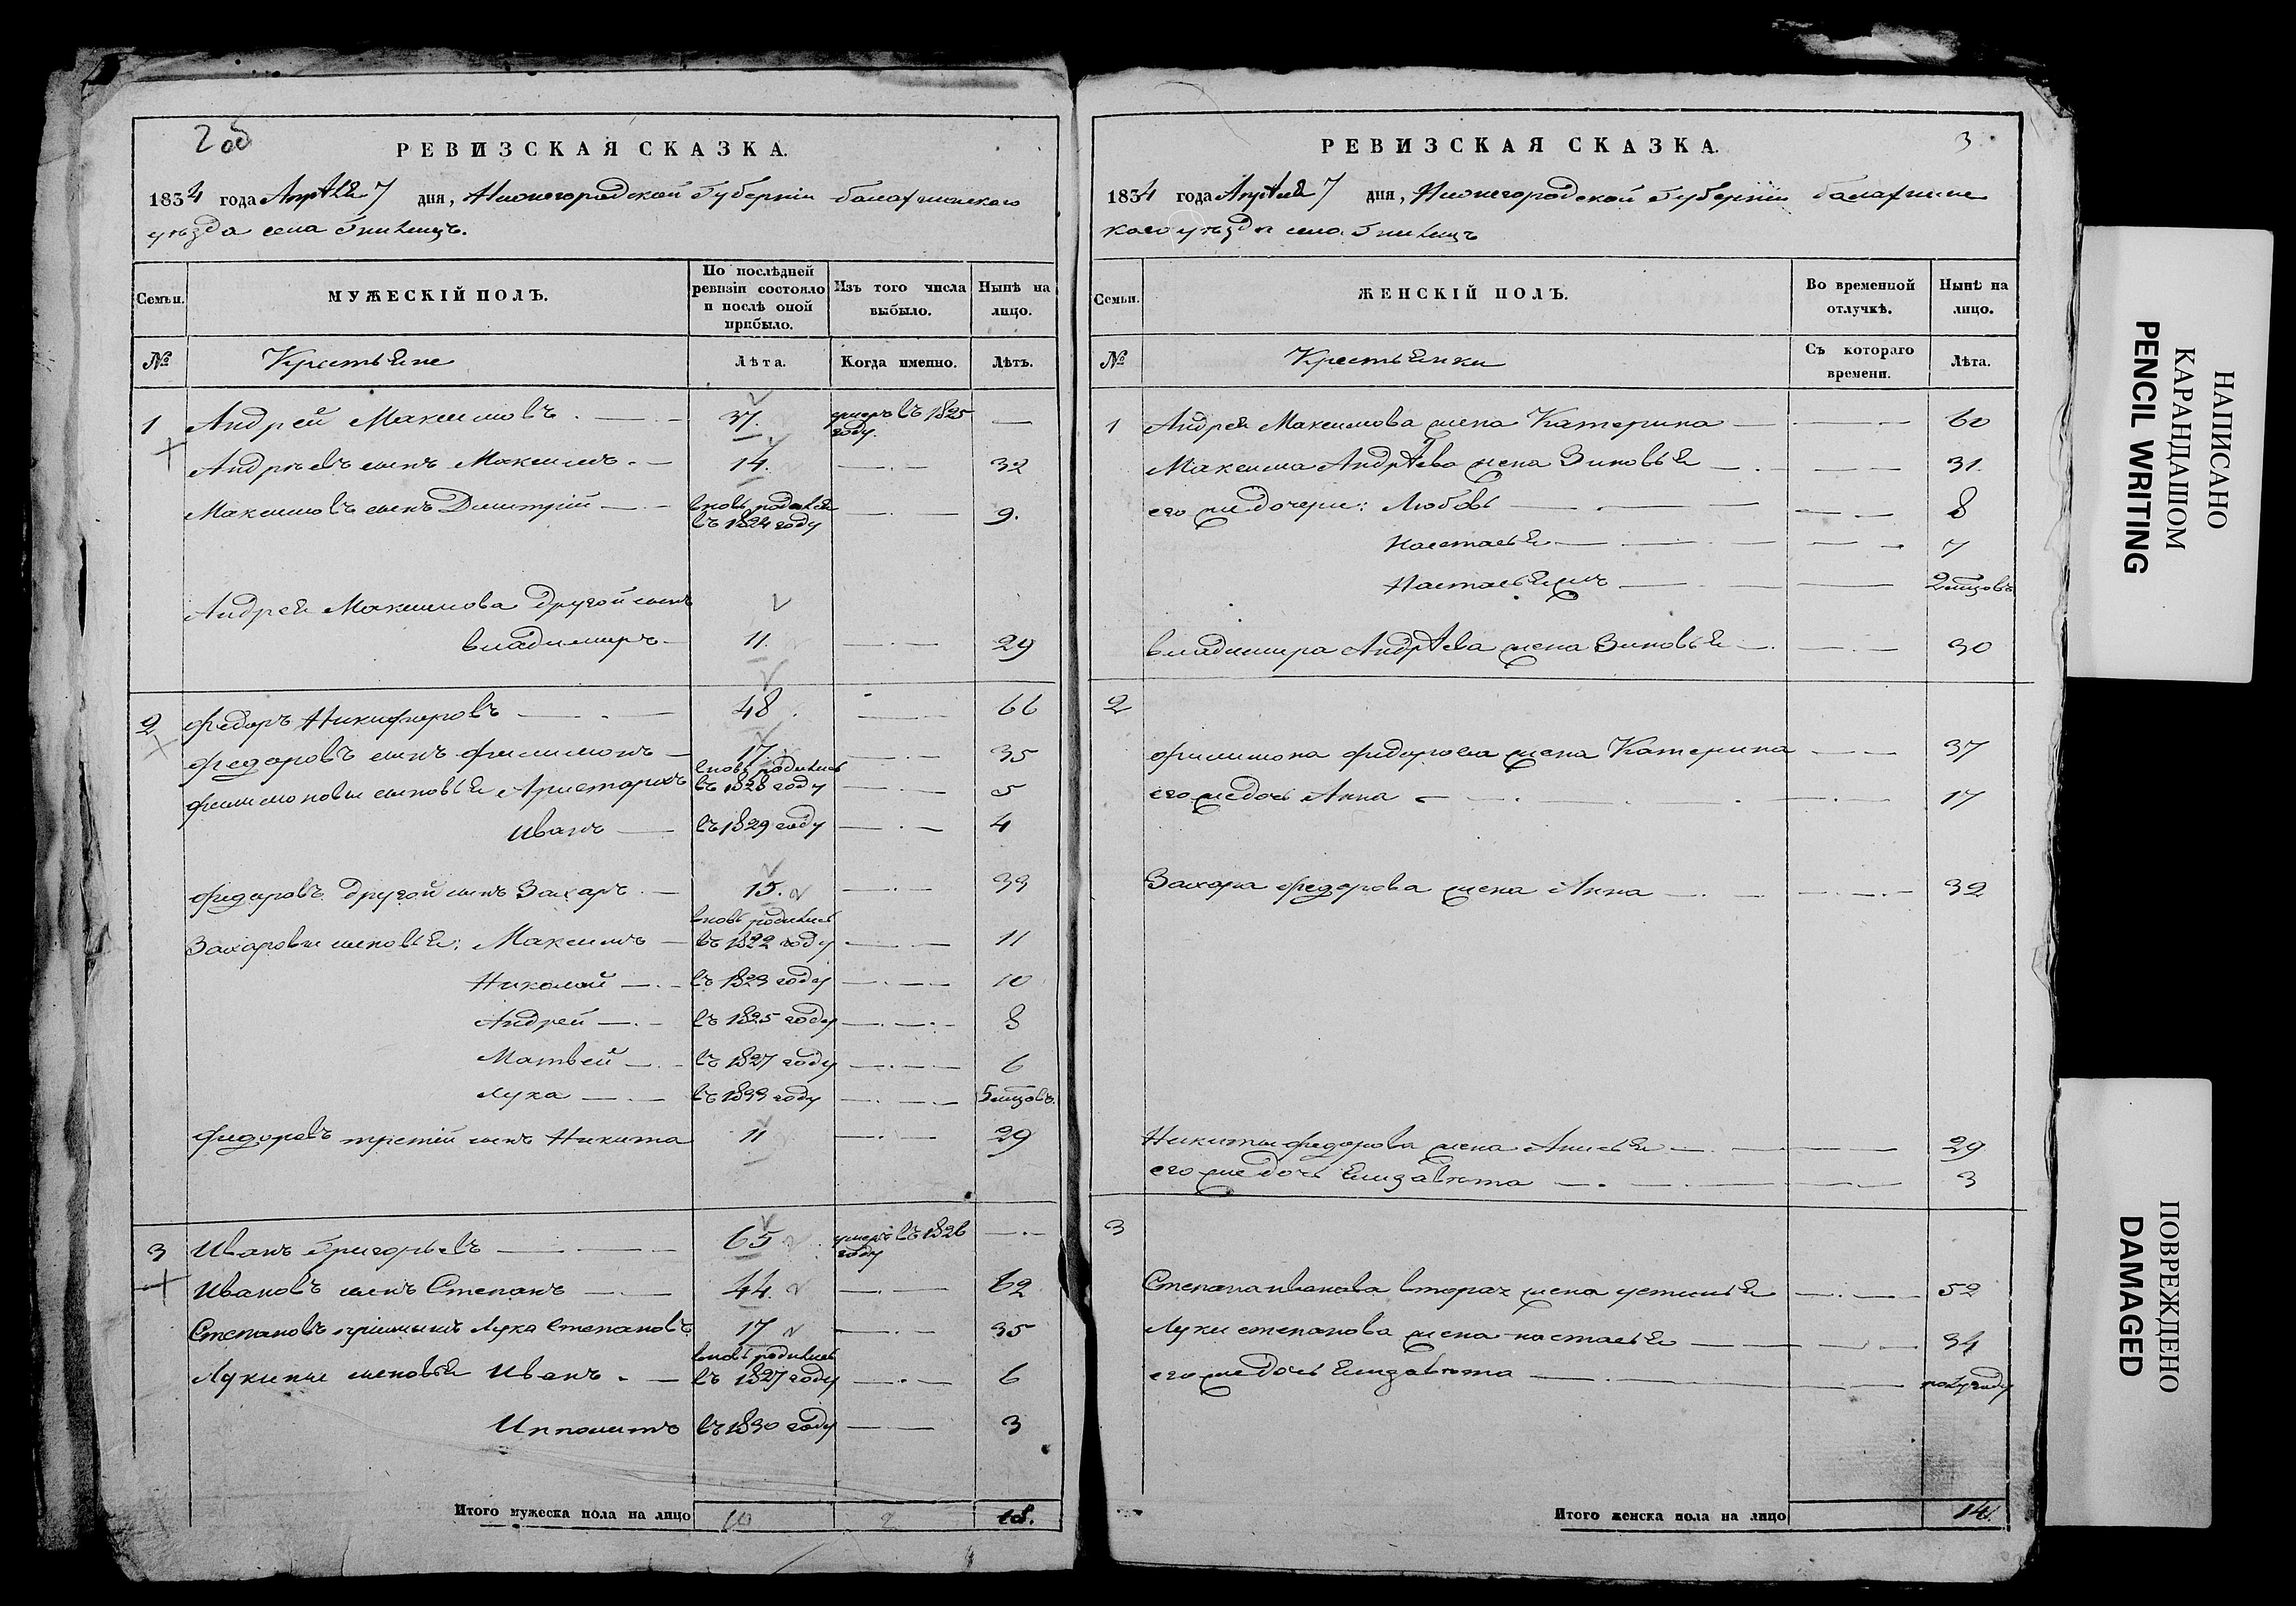 2 об
РЕВИЗСКАЯ СКАЗКА.
1834 года Апреля 7 дня, Нижегородской Губернии Балахнинскаго
уѣзда села Гнилицъ.
Семьи.
МУЖЕСКІЙ ПОЛЪ.
По послѣдней ревизіи состояло и послѣ оной прибыло.
Изъ того числа выбыло.
Нынѣ на лицо.
№
Крестьяне
Лѣта.
Когда именно.
Лѣтъ.
1 Андрей Максимовъ 37. умеръ въ 1825 году. —
Андрѣевъ сынъ Максимъ 14. 32
Максимовъ сынъ Димитрій вновь родился въ 1824 году 9.
Андрея Максимова другой сынъ
Владимиръ 11. 29
2 Федоръ Никифоровъ 48 66
Федоровъ сынъ Филимонъ 17. 35
Филимоновы сыновья Аристархъ вновь родились въ 1828 году 5
Иванъ въ 1829 году 4
Федоровъ другой сынъ Захаръ 15. 33
Захаровы сыновья: Максимъ вновь родились въ 1822 году 11
Николай въ 1823 году 10
Андрей въ 1825 году 8
Матвей въ 1827 году 6
Лука въ 1833 году 5 мцовъ.
Федоровъ третий сынъ Никита 11 29
3 Иванъ Григорьевъ 65 умеръ въ 1826 году
Ивановъ сынъ Степанъ 44. 62
Степановъ приимышъ Лука Степановъ 17 35
Лукины сыновья Иванъ вновь родились въ 1827 году 6
Ипполитъ въ 1830 году 3
Итого мужеска пола на лицо 10 2 18.
3.
РЕВИЗСКАЯ СКАЗКА.
1834 года Апреля 7 дня, Нижегородской Губернии Балахнинс
каго уѣзда села Гнилицъ
Семьи.
ЖЕНСКІЙ ПОЛЪ.
Во временной отлучкѣ.
Нынѣ на лицо.
№
Крестьянки
Съ котораго времени.
Лѣта.
1 Андрея Максимова жена Катерина 60
Максима Андреева жена Зиновья 31.
его же дочери: Любовь 8
Настасья 7
2 мцовъ
Владимира Андреева жена Зиновья 30
2
Филимона Федорова жена Катерина 37
его же дочь Анна 17
Захара Федорова жена Анна 32
Никиты Федорова жена Анисья 29
его же дочь Елизавѣта 3
3
Степана Иванова вторая жена Устинья 52
Луки Степанова жена Настасья 34
его же дочь Елизавѣта полугоду
Итого женска пола на лицо 14.
НАПИСАНО
КАРАНДАШОМ
PENCIL WRITING
ПОВРЕЖДЕНО
DAMAGED